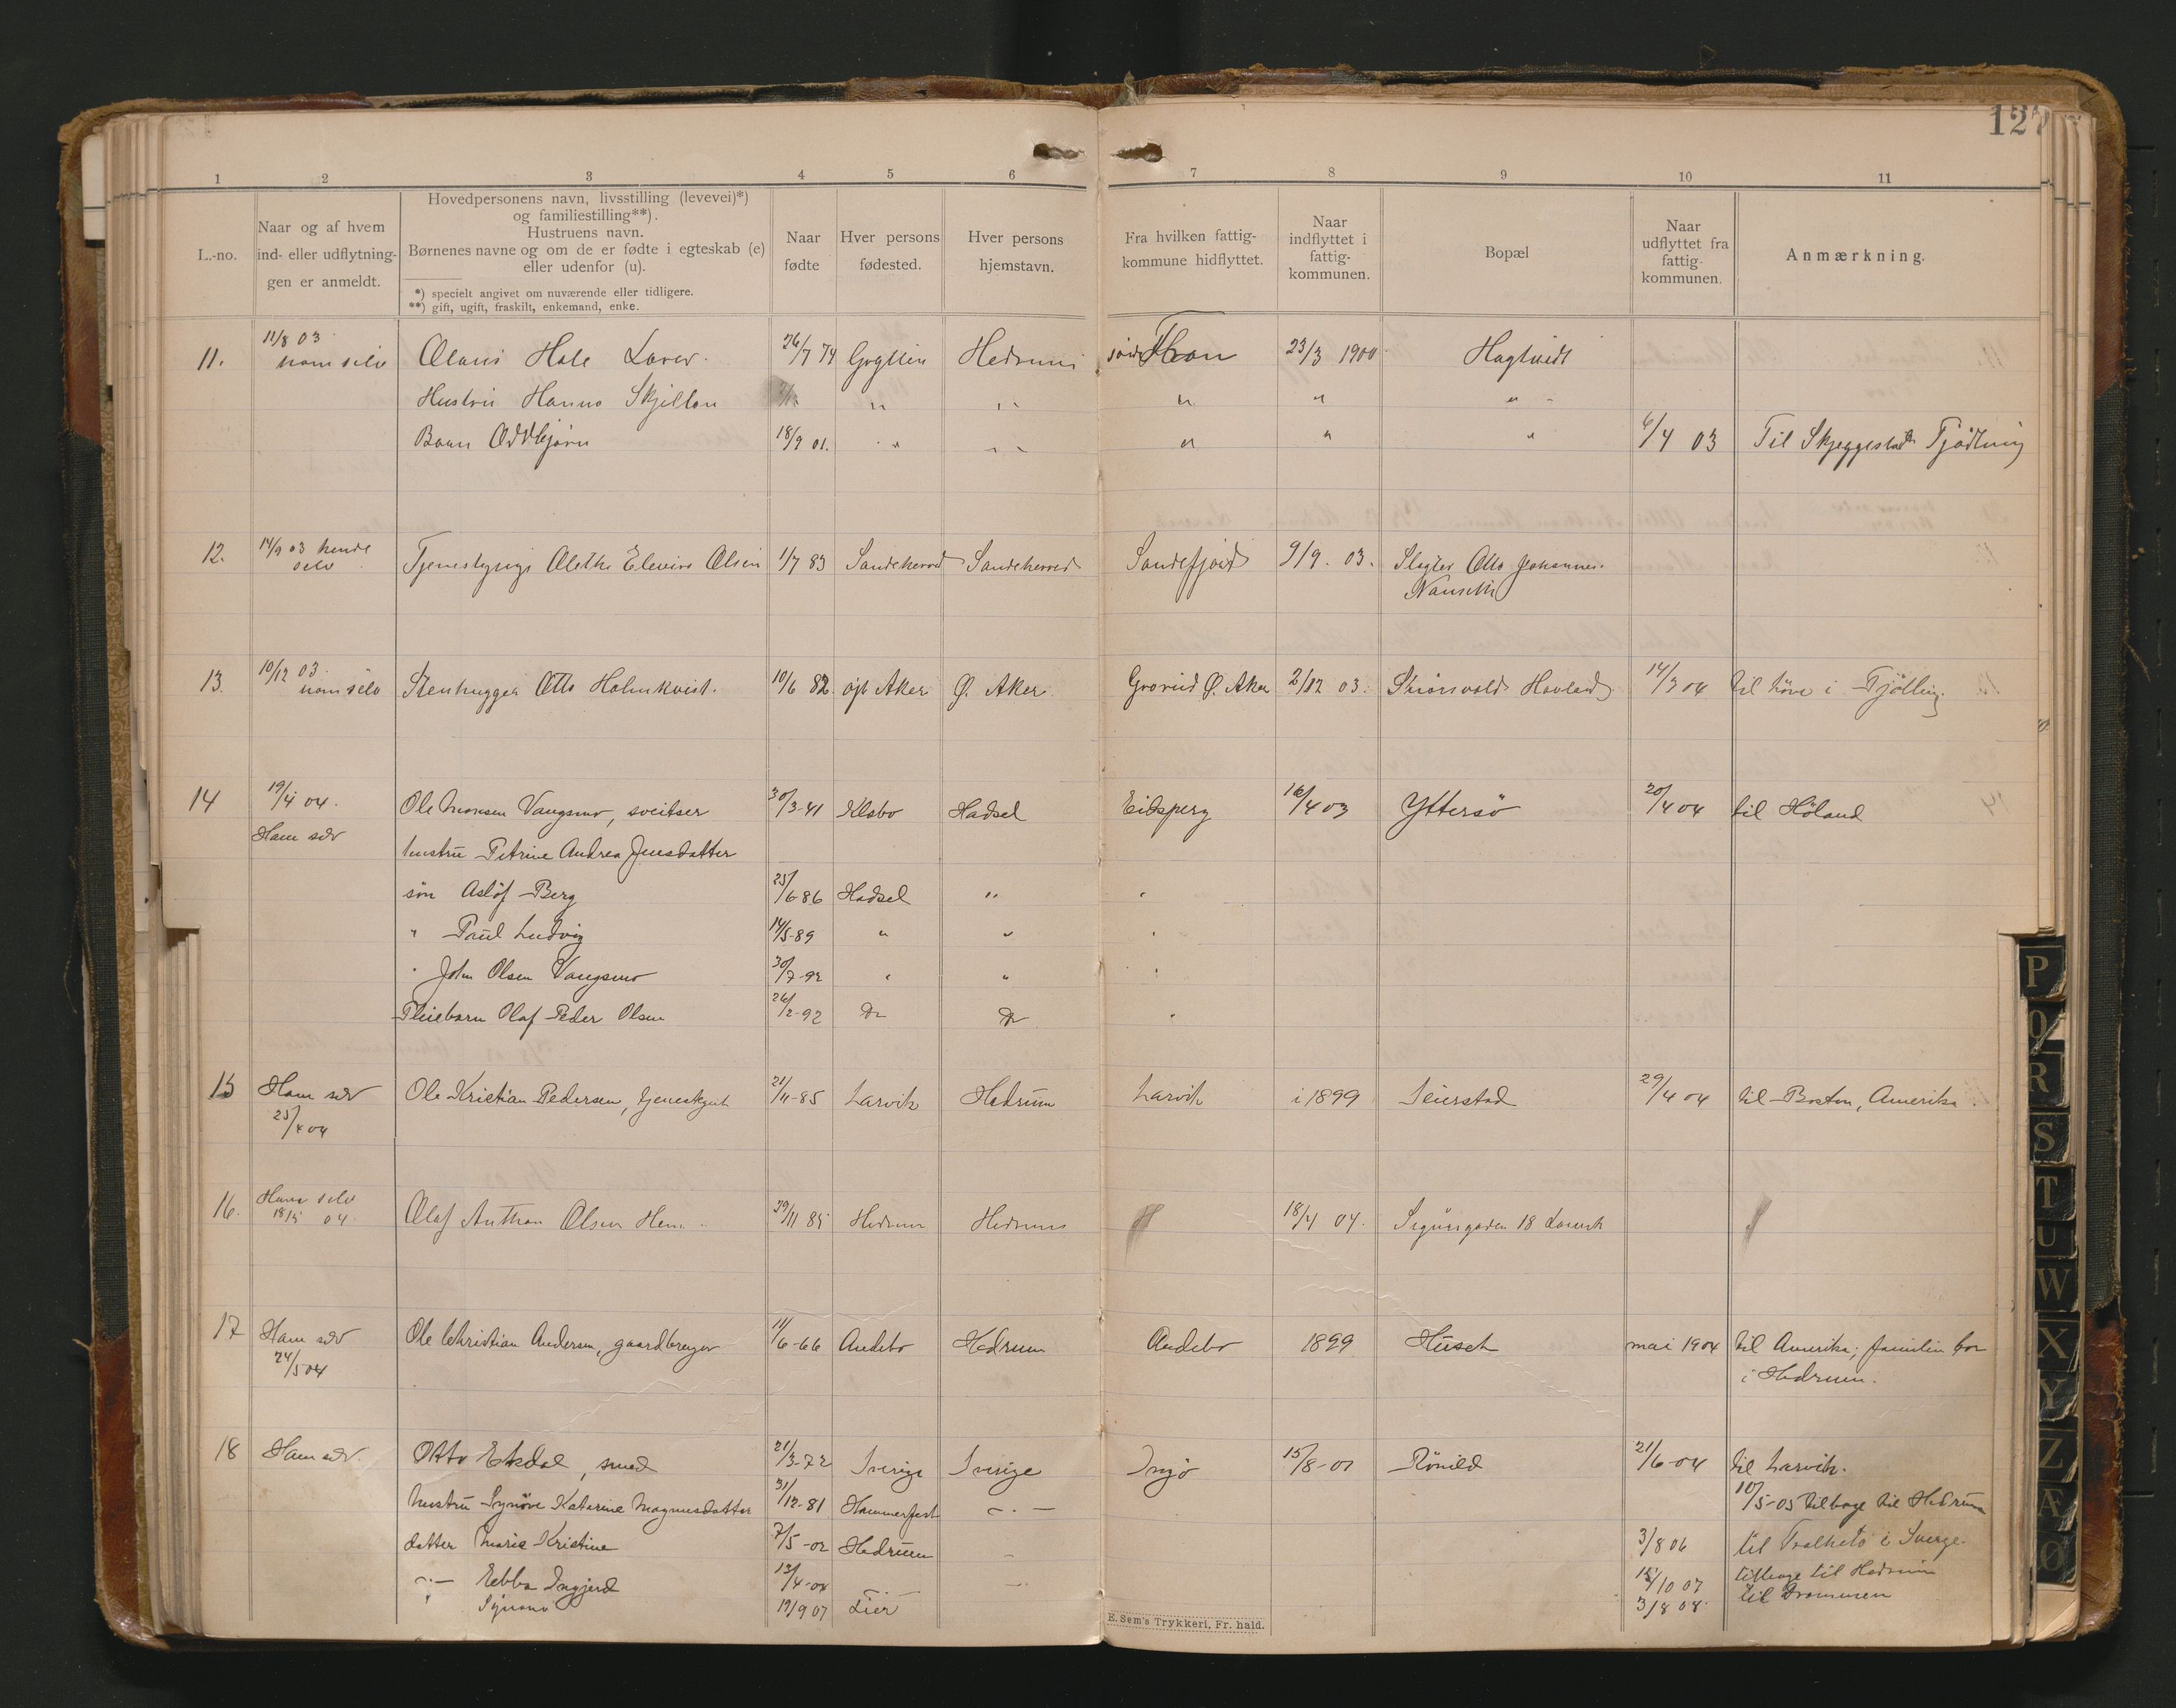 127
1 2 3 4 5 6 7 8 9 10 11
L.-no.
Naar og af hvem
ind- eller udflytnin-
gen er anmeldt.
Hovedpersonens navn, livsstilling (levevei)*)
og familiestilling**).
Hustruens navn.
Børnenes navne og om de er fødte i egteskab (e)
eller udenfor (u).
*) specielt angivet om nuværende eller tidligere.
**) gift, ugift, fraskilt, enkemand, enke.
Naar
fødte
Hver persons
fødested.
Hver persons
hjemstavn.
Fra hvilken fattig-
kommune hidflyttet.
Naar
indflyttet i
fattig-
kommunen.
Bopæl
Naar
udflyttet fra
fattig-
kommunen.
Anmærkning.
11/8 03
11. ham selv Olaus Hole 26/7 74 Hedrum 23/3 1900
Hustru Hanna " " " " "
Barn Oddbjørn 18/9 01. " " " " " 6/4 03 Til Skjeggestad Tjødling
12. 14/9 03 hende Tjenestepige Olethe Elevine Olsen 1/7 83 Sandeherred Sandeherred Sandefjord 9/9. 03. Slagter Otto Johannes.
selv Nanseth
10/12 03.
13. ham selv Stenhugger Otto Holmkvist. 10/6 82. Aker Ø. Aker Grorud Ø. Aker 2/12 03. Hovland 14/3 04 til i Tjølling.
14 19/4 04. Ole Monsen Vangsmo, sveitser 30/3-41 Klæbo Hadsel Eidsperg 16/4 03 Yttersö 20/4 04 til Höland
Ham selv hustru Petrine Andrea Jensdatter
sön Aslöf Berg 25/6-86 Hadsel " "
" Paul Ludvig 14/5-89 " " "
" John Olsen Vangsmo 30/7-92 " " "
Pleiebarn Olaf Peder Olsen 26/2-92 Do Do "
15 Ham selv Ole Kristian Pedersen, tjenestegut 21/11-85 Larvik Hedrum Larvik i 1899 Seierstad 29/4 04 til Boston, Amerika.
25/4 04
16. Ham selv Olaf Anthon Olsen 30/11 85 Hedrum Hedrum 18/4 04. 18 Larvik
18/5 04.
17 Ham selv Ole Christian Andersen, gaardbruger 11/6-66 Andebo Hedrum Andebo 1899 Huset mai 1904 til Amerika; familien bor
24/5 04 i Hedrum.
18 Ham selv. Otto Ekdal, smed 21/3-72 Sverige Sverige 15/8-01 Römild 21/6-04 til Larvik.
hustru Synöve Katarine Magnusdatter 31/12-81 Hammerfest —·— 10/5-05 tilbage til Hedrum
datter Marie Kristine 7/5-02 Hedrum — 3/8 06 til i Sverge.
—·— Ebba Ingjerd 13/4-04 —·— — 15/10 07 tilbage til Hedrum
" 12/9 07 Lier 3/8 08. til Drammen
E. Sem's Trykkeri, Fr. hald.
P
Q
R
S
T
U
W
X
Y
Z
Æ
Ø